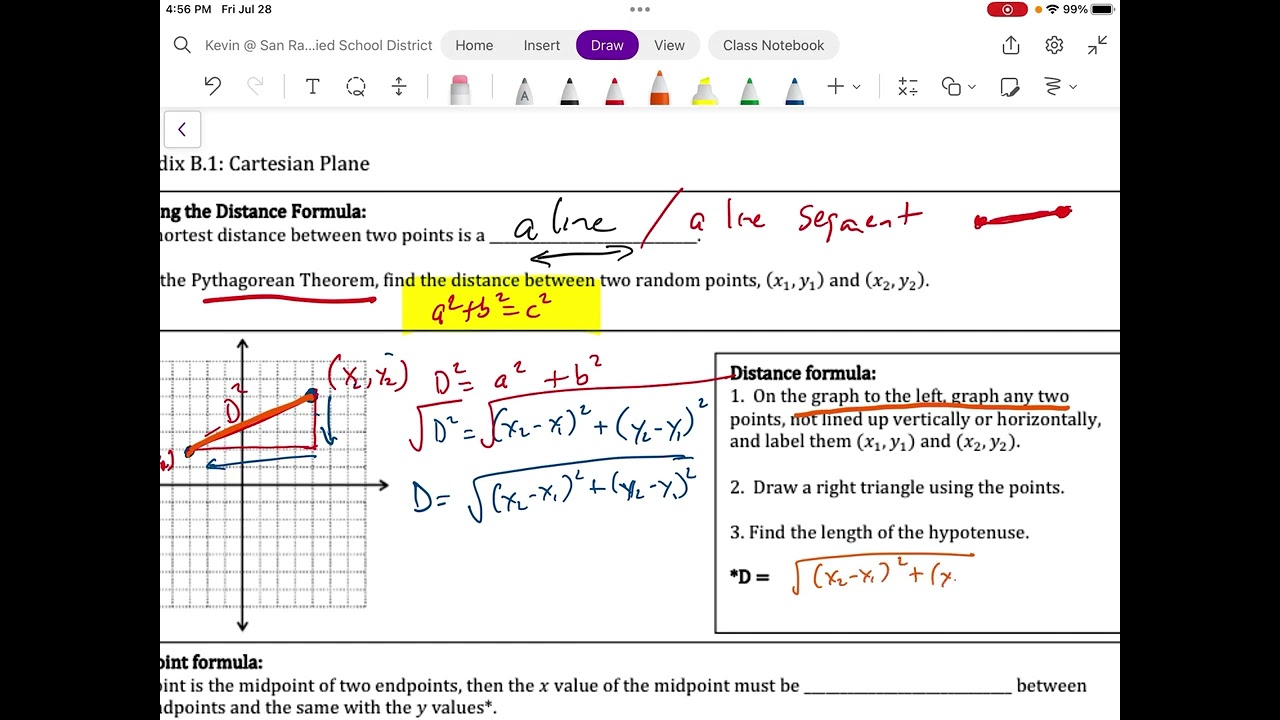 4:56 PM Fri Jul 28
99%
Kevin @ San Ra...ied School District Home Insert Draw View Class Notebook
dix B.1: Cartesian Plane
ng the Distance Formula:
ortest distance between two points is a a line / a line segment.
the Pythagorean Theorem, find the distance between two random points, (x₁, y₁) and (x₂, y₂).
a² + b² = c²
(x₂, y₂)
D² = a² + b²
D²
√D² = √(x₂ - x₁)² + (y₂ - y₁)²
D = √(x₂ - x₁)² + (y₂ - y₁)²
Distance formula:
1. On the graph to the left, graph any two
points, not lined up vertically or horizontally,
and label them (x₁, y₁) and (x₂, y₂).
2. Draw a right triangle using the points.
3. Find the length of the hypotenuse.
*D = √(x₂ - x₁)² + (y
oint formula:
oint is the midpoint of two endpoints, then the x value of the midpoint must be ____________________ between
dpoints and the same with the y values*.